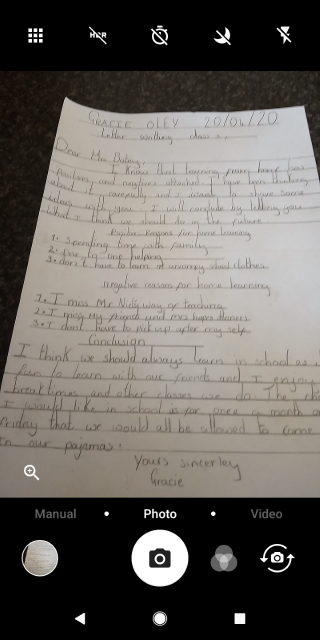 HDR
GRACIE OLEY 20/04/20
Letter writing class 2.
Dear Mrs
I know that learning from home has
positives and negatives attached I have been thinking
about it carefully and I would like to share some
ideas with you. I will conclude by telling you
what I think we should do in the future
Positive Reasons for home learning
1. Spending time with family
2. One to one helping
3. don't have to learn in school clothes
negative reasons for home learning
1. I miss Mr Nick's way of teaching
2. I miss my friends and
3. I don't have to pick up after my self
Conclusion
I think we should always learn in school as
fun to learn with our friends and I enjoy
breaktimes and other classes we do. The
I would like in school is for once a month
Friday that we would all be allowed to come
in our pajamas.
Yours sincerley
Gracie
Manual
Photo
Video